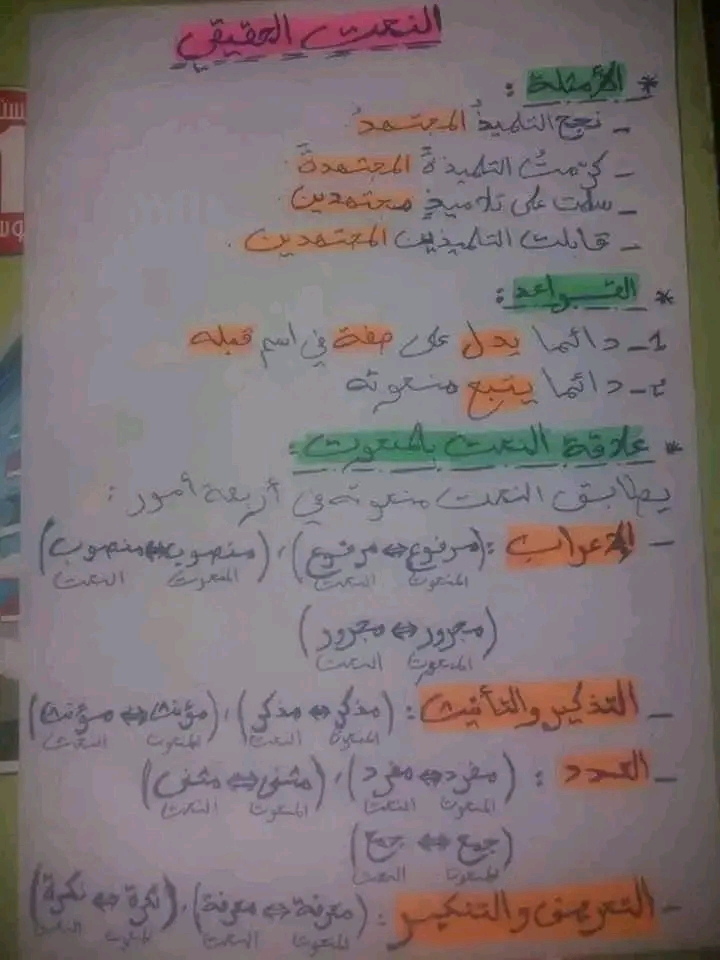 النعت الحقيقي
* الأمثلة :
- نجح التلميذُ المجتهدُ
- كرّمتُ التلميذةَ المجتهدةَ
- سلمت على تلاميذٍ مجتهدين
- قابلت التلميذين المجتهدين .
* القواعد :
1- دائما يدل على صفة في اسم قبله
2- دائما يتبع منعوته
* علاقة النعت بالمنعوت :
يطابق النعت منعوته في أربعة أمور :
- الإعراب : (مرفوع ⇔ مرفوع) ، (منصوب ⇔ منصوب)
المنعوت النعت المنعوت النعت
(مجرور ⇔ مجرور)
المنعوت النعت
- التذكير والتأنيث : (مذكر ⇔ مذكر) ، (مؤنث ⇔ مؤنث)
المنعوت النعت المنعوت النعت
- العدد : (مفرد ⇔ مفرد) ، (مثنى ⇔ مثنى)
المنعوت النعت المنعوت النعت
(جمع ⇔ جمع)
المنعوت النعت
- التعريف والتنكير : (معرفة ⇔ معرفة) ، (نكرة ⇔ نكرة)
المنعوت النعت المنعوت النعت
1